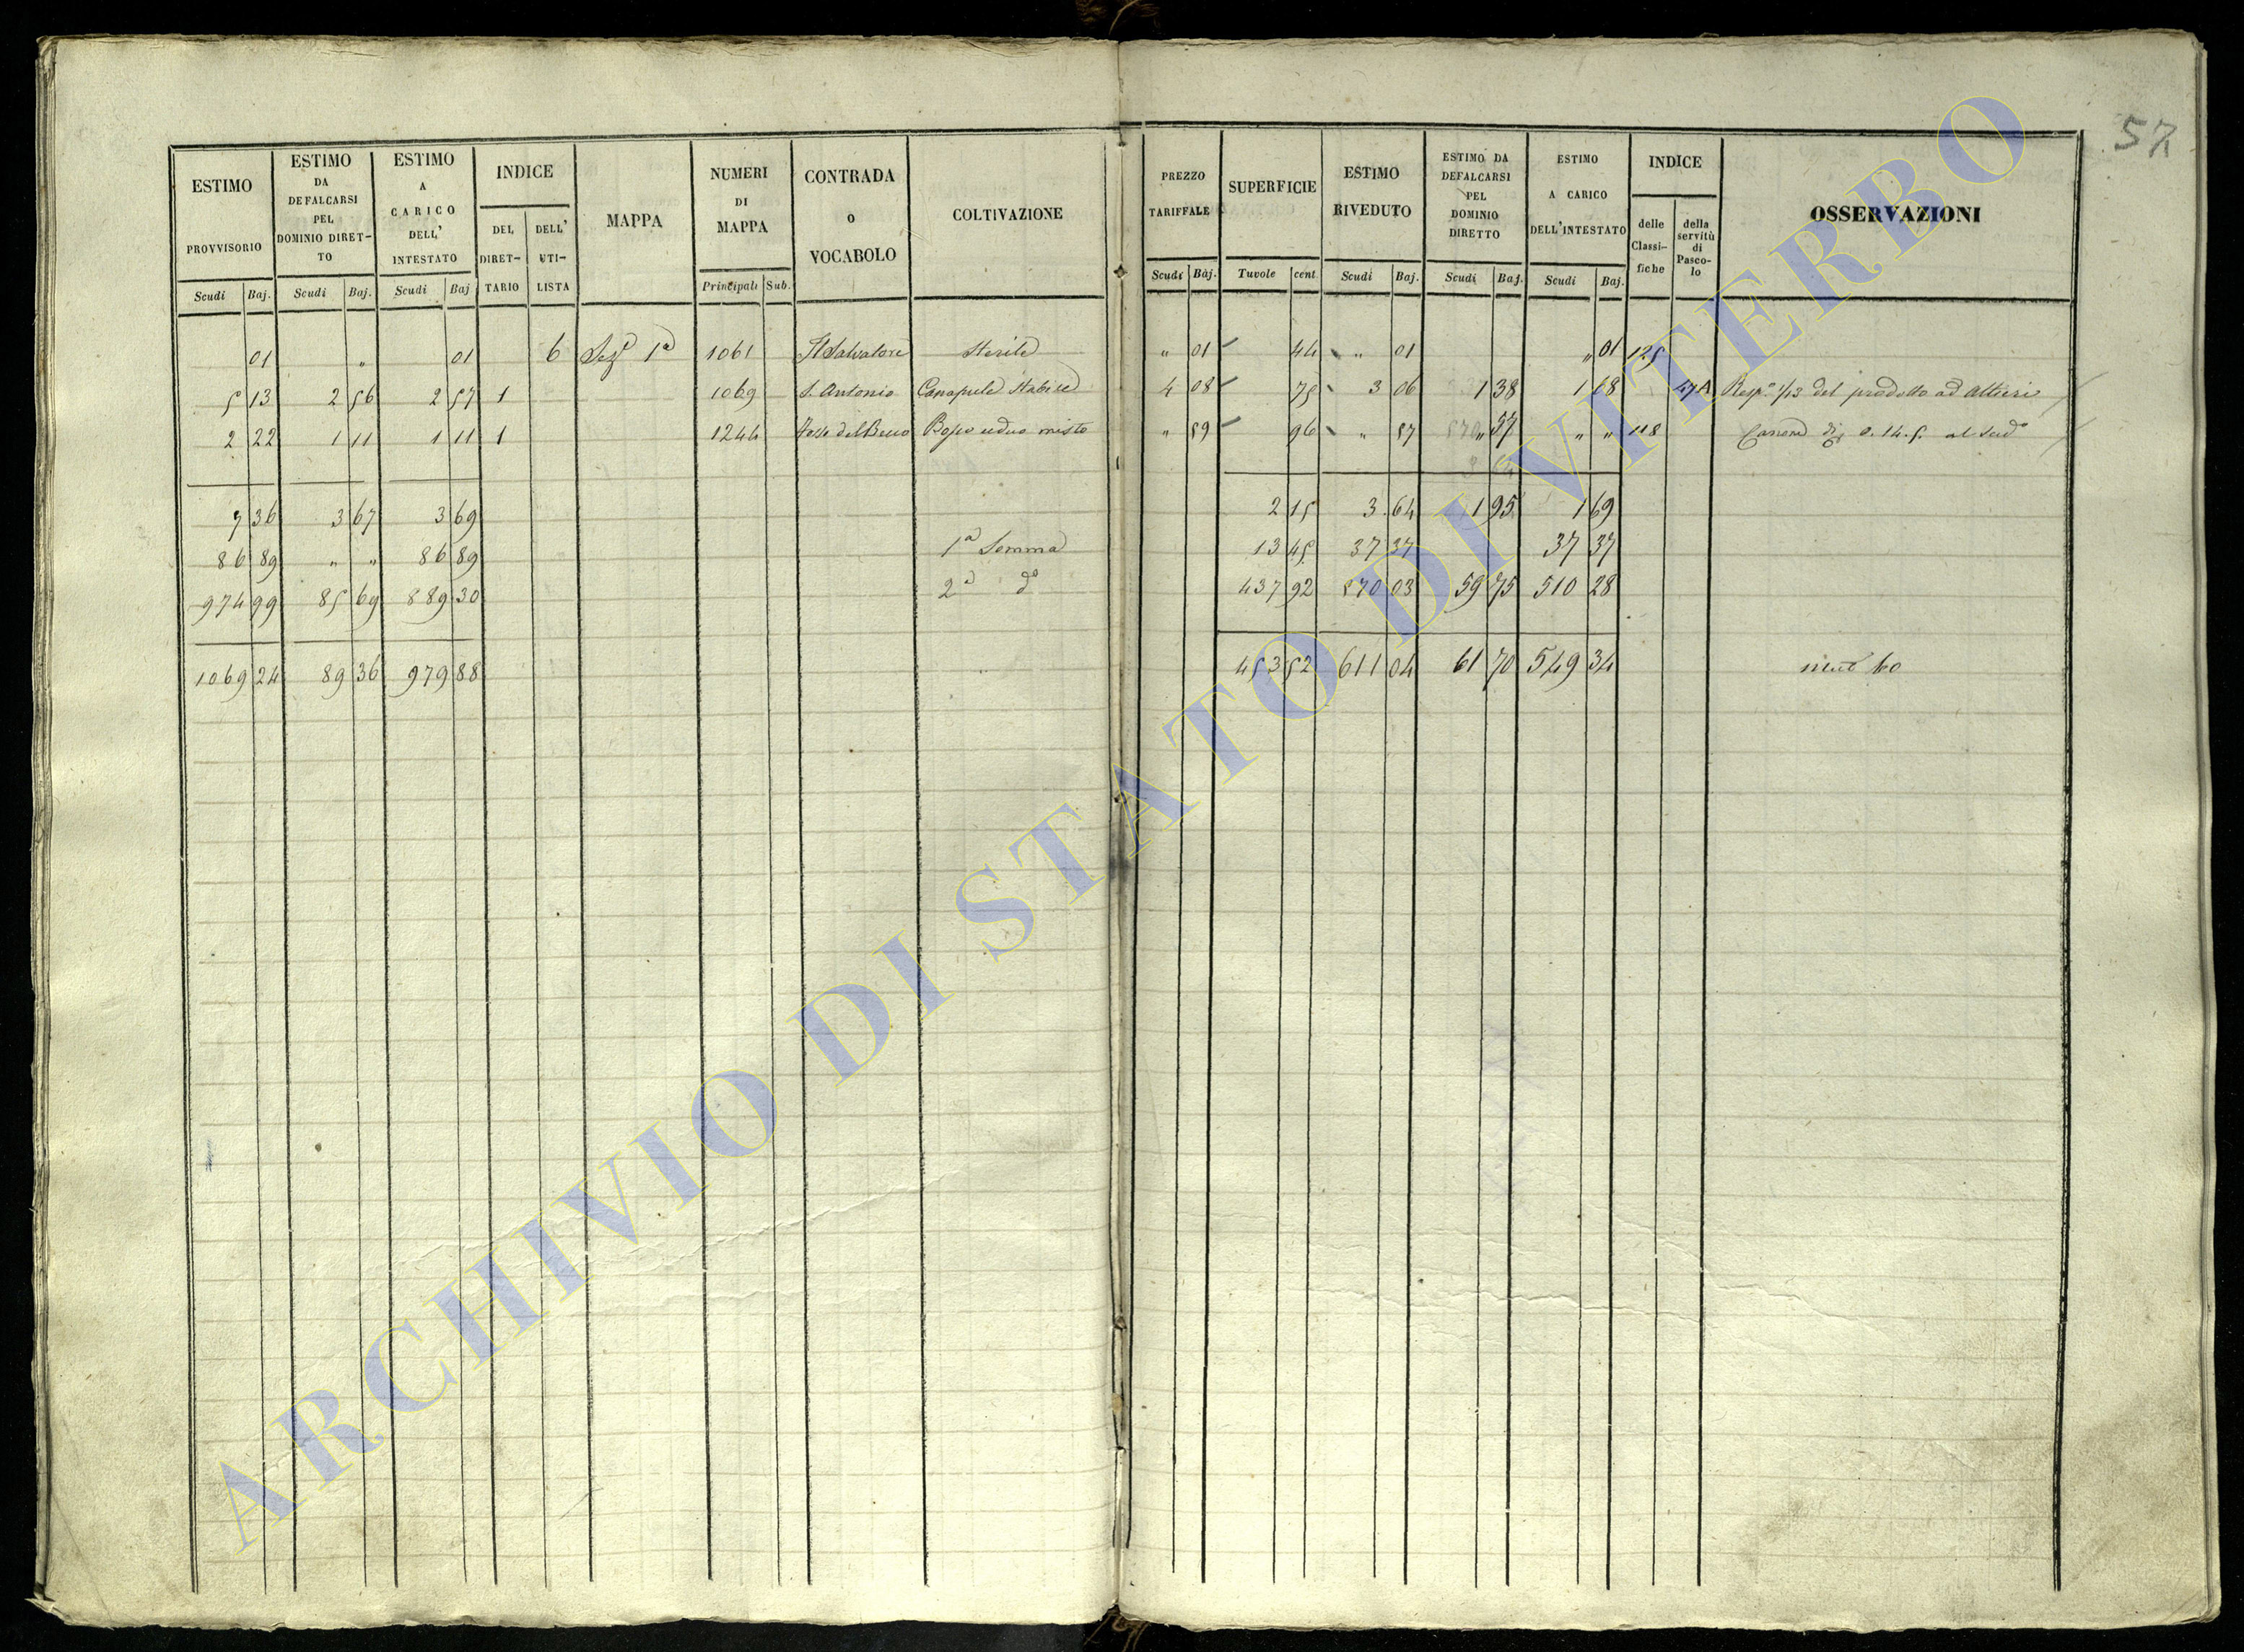 57
ESTIMO PROVVISORIO
ESTIMO DA DEFALCARSI PEL DOMINIO DIRET-TO
ESTIMO A CARICO DELL' INTESTATO
INDICE
DEL DIRET-TARIO
DELL' UTI-LISTA
MAPPA
NUMERI DI MAPPA
CONTRADA O VOCABOLO
COLTIVAZIONE
PREZZO TARIFFALE
SUPERFICIE
ESTIMO RIVEDUTO
ESTIMO DA DEFALCARSI PEL DOMINIO DIRETTO
ESTIMO A CARICO DELL'INTESTATO
INDICE
delle Classi-fiche
della servitù di Pasco-lo
OSSERVAZIONI
Scudi Baj. Scudi Baj. Scudi Baj Principali Sub. Scudi Baj. Tavole cent. Scudi Baj. Scudi Baj. Scudi Baj.
01 " 01 6 Sez.e 1a 1061 S Salvatore Sterile " 01 44 " 01 " 01 125
5 13 2 56 2 57 1 1069 S. Antonio Canapule Stabile 4 08 75 3 06 1 38 1 68 47A Resp.e 1/13 del prodotto ad Altieri
2 22 1 11 1 11 1 1244 Bosco ceduo misto " 59 96 " 57 " 57 " " 118 Canone di 0.14.5. al Scud.o
7 36 3 67 3 69 2 15 3 64 1 95 1 69
86 89 " " 86 89 1a Somma 13 45 37 37 37 37
974 99 85 69 889 30 2a do 437 92 570 03 59 75 510 28
1069 24 89 36 979 88 453 52 611 04 61 70 549 34
ARCHIVIO DI STATO DI VITERBO